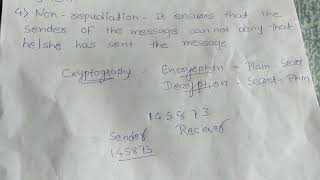 4) Non-repudiation - It ensures that the
sender of the message can not deny that
he/she has sent the message
Cryptography - Encryption - Plain - Secret
Decryption - Secret - Plain
145873
Sender Reciever
145873